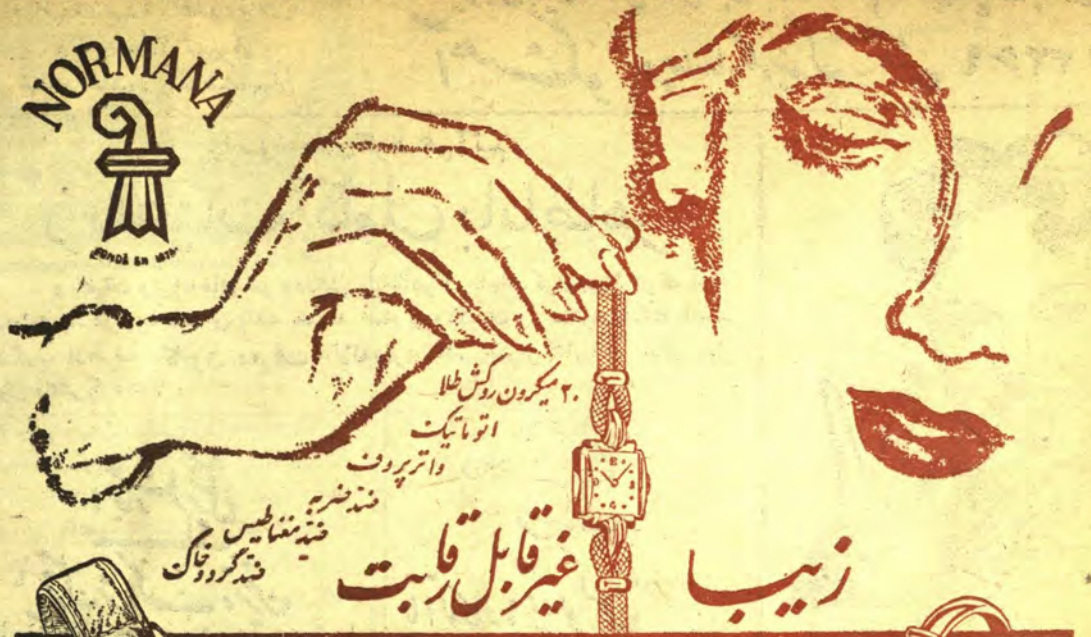 NORMANA
FONDÉ EN
۲۰ میکرون روکش طلا
اتوماتیک
واترپروف
ضد ضربه
ضد مغناطیس
ضد گرد و خاک
زیبا غیر قابل رقابت